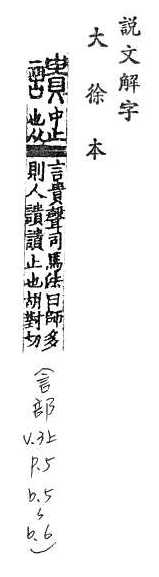 説文解字
大徐本
中止
也从
言貴聲司馬法曰師多
則人䜋䜋止也胡對切
(言部
v.3上
p.5
b.5
~
b.6)